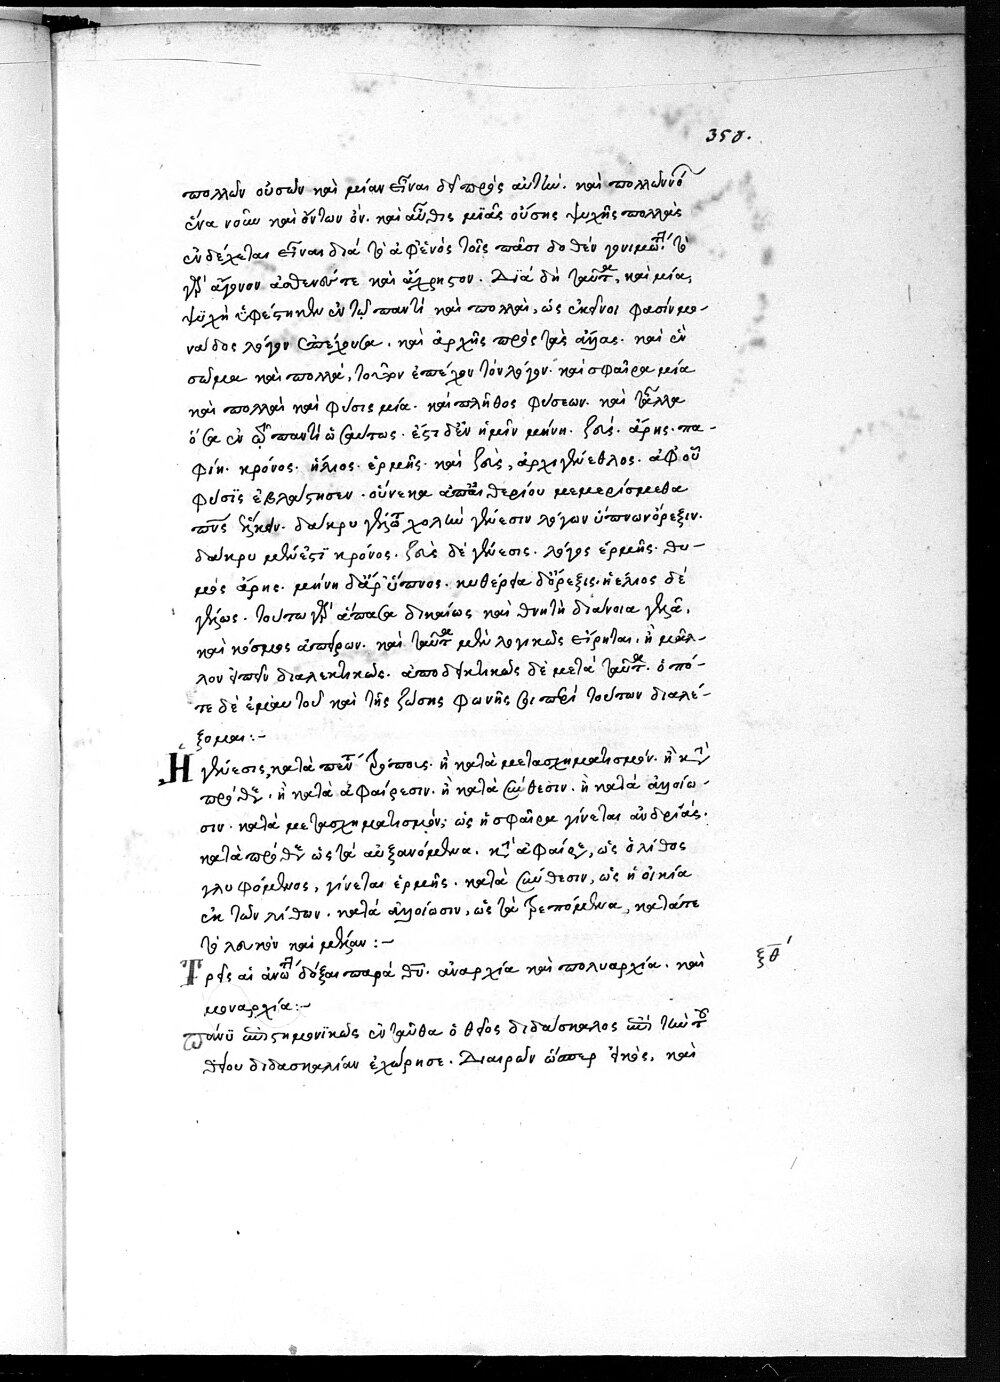 350.
πολλῶν οὐσῶν καὶ μίαν εἶναι δεῖ πρὸς αὐτῶν. καὶ πολλῶν νό
ἕνα νοῦν καὶ ὄντων ὄν. καὶ αὖθις μιᾶς οὔσης ψυχῆς πολλὰς
ἐνδέχεται εἶναι διὰ τὸ ἀφ' ἑνὸς τοῖς πᾶσι δοθὲν τὸ
γὰρ ἄγονον ἀσθενές τε καὶ ἄχρηστον. Διὰ δὴ ταῦτα, καὶ μία,
ψυχὴ ὑφέστηκεν ἐν τῷ παντὶ καὶ πολλαὶ, ὡς ἐκεῖνοι φασὶν μο-
νάδος λόγον ἐπέχουσα. καὶ ἀρχῆς πρὸς τὰς ἄλλας. καὶ ἓν
σῶμα καὶ πολλά, ἐπέχον τὸν λόγον. καὶ σφαῖρα μία
καὶ πολλαὶ καὶ φύσις μία. καὶ πλῆθος φύσεων. καὶ τἄλλα
ὅσα ἐν τῷ παντὶ ὡσαύτως. ἔστι δ' ἐν ἡμῖν μήνη. ζεύς. ἄρης. πα-
φίη. κρόνος. ἥλιος. ἑρμῆς. καὶ ζεὺς, ἀρχιγένεθλος. ἀφ' οὗ
φύσις ἐβλάστησεν. οὕνεκα ἀπ' αἰθερίου μεμερίσμεθα
πνεῦμα ἕλκειν. δάκρυ γέλωτα χολὴν γένεσιν λόγον ὕπνον ὄρεξιν.
δάκρυ μέν ἐστι κρόνος. ζεὺς δὲ γένεσις. λόγος ἑρμῆς. θυ-
μὸς ἄρης. μήνη δ' ἄρ' ὕπνος. κυθέρεια δ' ὄρεξις. ἠέλιος δὲ
γέλως. τούτῳ γὰρ ἅπασα δικαίως καὶ θνητὴ διάνοια γελᾶ.
καὶ κόσμος ἀπείρων. καὶ ταῦτα μὲν λογικῶς εἴρηται. ἢ μᾶλ-
λον εἰπεῖν διαλεκτικῶς. ἀποδεικτικῶς δὲ μετὰ ταῦτα. ὁπό-
τε δὲ ἐμαυτοῦ καὶ τῆς ζώσης φωνῆς σοι περὶ τούτων διαλέ-
ξομαι:-
Ἡ γένεσις, κατὰ πέντε τρόπους. ἢ κατὰ μετασχηματισμόν. ἢ κατὰ
πρόσθεσιν. ἢ κατὰ ἀφαίρεσιν. ἢ κατὰ σύνθεσιν. ἢ κατὰ ἀλλοίω-
σιν. κατὰ μετασχηματισμόν, ὡς ἡ σφαῖρα γίνεται ἀνδριάς.
κατὰ πρόσθεσιν ὡς τὰ αὐξανόμενα. κατὰ ἀφαίρεσιν, ὡς ὁ λίθος
γλυφόμενος, γίνεται ἑρμῆς. κατὰ σύνθεσιν, ὡς ἡ οἰκία
ἐκ τῶν λίθων. κατὰ ἀλλοίωσιν, ὡς τὰ τρεπόμενα, κατά τε
τὸ λευκὸν καὶ μέλαν:-
Τρεῖς αἱ ἀνωτάτω δόξαι παρὰ θεοῦ. ἀναρχία καὶ πολυαρχία. καὶ
ξθ
μοναρχία:-
Πάνυ ἐπιστημονικῶς ἐνταῦθα ὁ θεῖος διδάσκαλος ἐπὶ τὴν τοῦ
θείου διδασκαλίαν ἐχώρησε. Διαιρῶν ὥσπερ εἰκὸς, καὶ